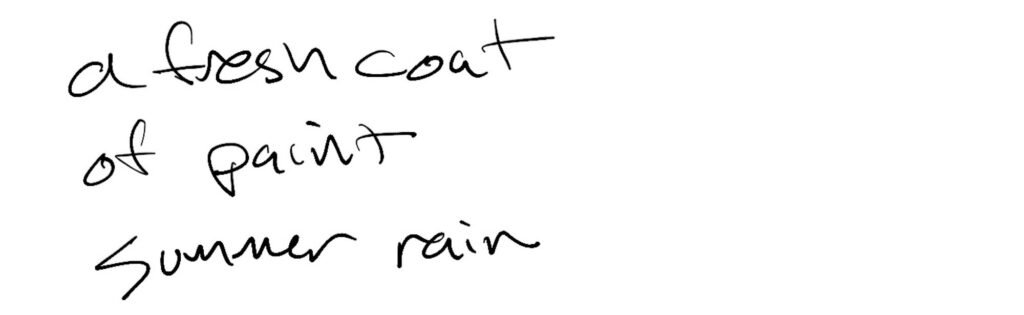 a fresh coat
of paint
summer rain